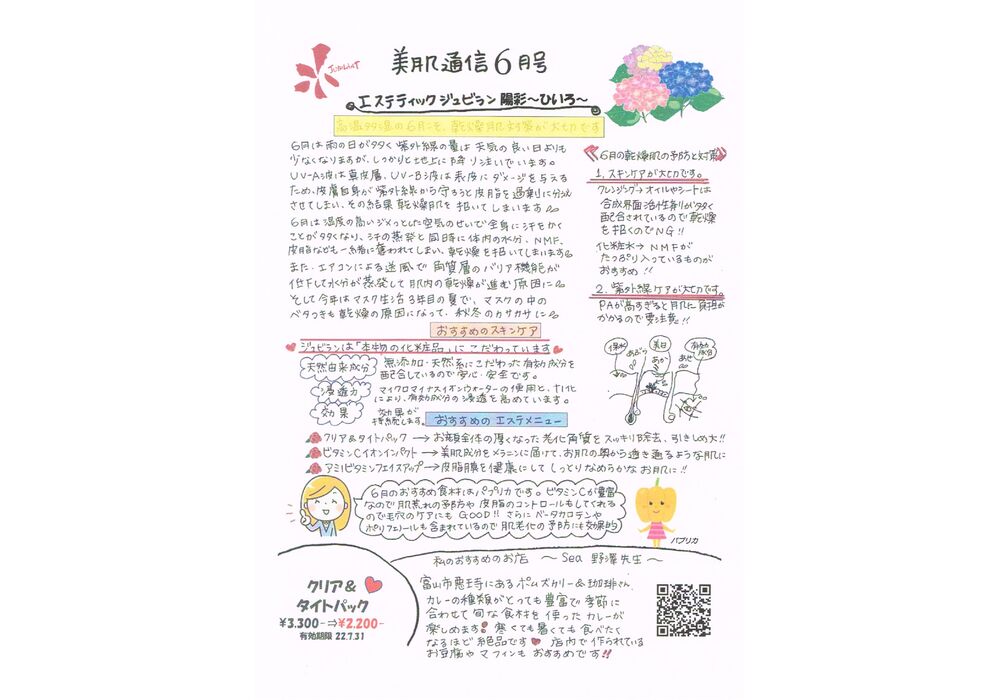 JUBILANT
美肌通信6月号
エステティックジュビラン 陽彩〜ひいろ〜
高温多湿の6月こそ、乾燥肌対策が大切です
6月は雨の日が多く紫外線の量は天気の良い日よりも
少なくなりますが、しっかりと地上に降り注いでいます。
UV-A波は真皮層、UV-B波は表皮にダメージを与える
ため、皮膚自身が紫外線から守ろうと皮脂を過剰に分泌
させてしまい、その結果乾燥肌を招いてしまいます
6月は湿度の高いジメっとした空気のせいで全身に汗をかく
ことが多くなり、汗の蒸発と同時に体内の水分、NMF、
皮脂なども一緒に奪われてしまい、乾燥を招いてしまいます
また、エアコンによる送風で角質層のバリア機能が
低下して水分が蒸発して肌内の乾燥が進む原因に
そして今年はマスク生活3年目の夏で、マスクの中の
ベタつきも乾燥の原因になって、秋冬のカサカサに
《6月の乾燥肌の予防と対策》
1. スキンケアが大切です。
クレンジング→オイルやシートは
合成界面活性剤が多く
配合されているので乾燥
を招くのでNG!!
化粧水→NMFが
たっぷり入っているものが
おすすめ!!
2. 紫外線ケアが大切です。
PAが高すぎると肌に負担が
かかるので要注意!!
おすすめのスキンケア
ジュビランは「本物の化粧品」にこだわっています
天然由来成分
無添加・天然系にこだわった有効成分を
配合しているので安心・安全です。
浸透力
マイクロマイナスイオンウォーターの使用と、ナノ化
により、有効成分の浸透を高めています。
効果
効果が
持続します。
おすすめのエステメニュー
クリア&タイトパック→お顔全体の厚くなった老化角質をスッキリ除去、引きしめ大!!
ビタミンCイオンインパクト→美肌成分をメラニンに届けて、お肌の奥から透き通るような肌に
アミノビタミンフェイスアップ→皮脂膜を健康にしてしっとりなめらかなお肌に!!
6月のおすすめ食材はパプリカです。ビタミンCが豊富
なので肌荒れの予防や皮脂のコントロールもしてくれる
ので毛穴のケアにもGOOD!! さらにベータカロテンや
ポリフェノールも含まれているので肌老化の予防にも効果的
パプリカ
私のおすすめのお店 〜Sea 野澤先生〜
クリア&
タイトパック
¥3.300-⇒¥2.200-
有効期限 22.7.31
富山市恵王寺にあるポムズカリー&珈琲さん
カレーの種類がとても豊富で季節に
合わせて旬な食材を使ったカレーが
楽しめます! 寒くても暑くても食べたく
なるほど絶品です 店内で作られている
お豆腐やマフィンもおすすめです!!